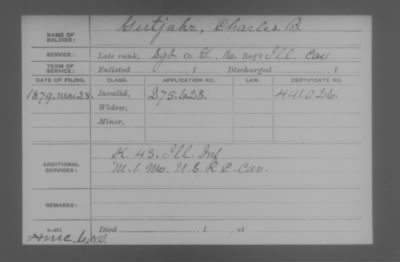 NAME OF SOLDIER: Gutjahr, Charles B.
SERVICE: Late rank, Sgt Co. G, No. Reg't Ill. Cav
TERM OF SERVICE: Enlisted , 1 Discharged , 1
DATE OF FILING. CLASS. APPLICATION NO. LAW. CERTIFICATE NO.
1879. Mar. 28. Invalid, 275.623. 441.026.
Widow,
Minor,
K 43. Ill. Inf
ADDITIONAL SERVICES: M. 1. Mo. U.S. R. C. Cav.
REMARKS:
Died , 1 , at